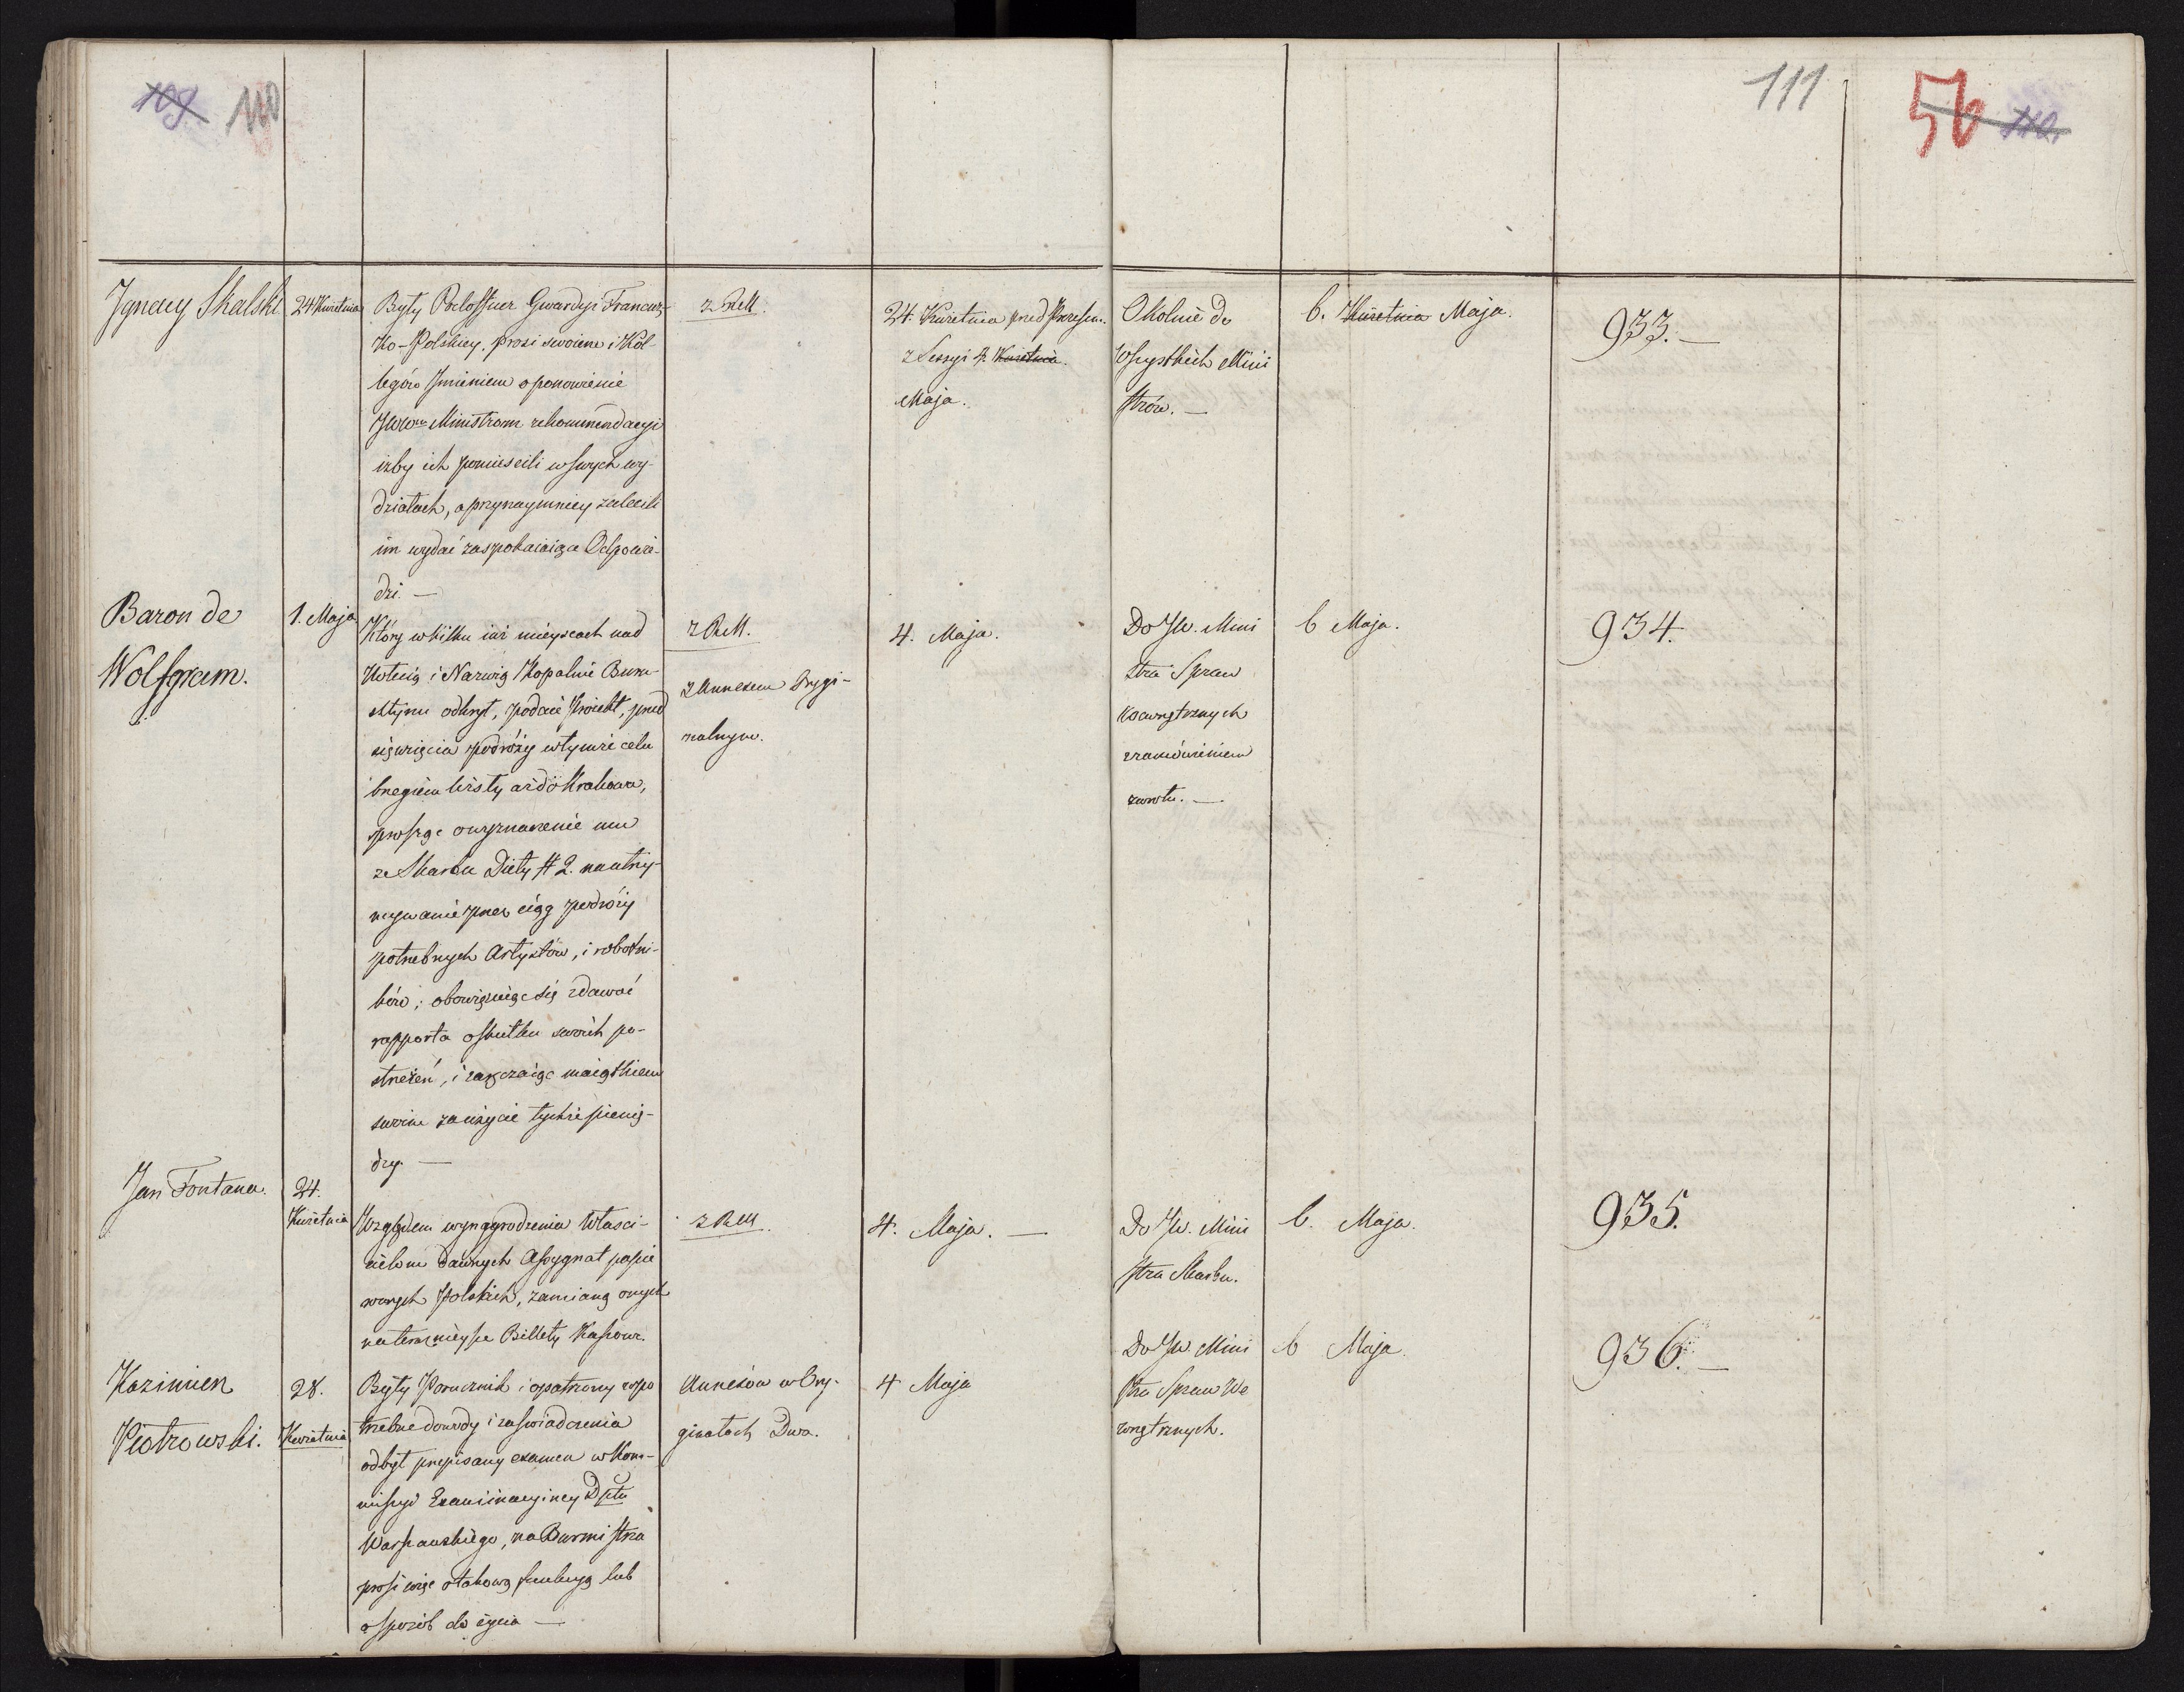 109 110
111
56 110.
Jgnacy Skalski
24 Kwietnia
Były Podofficer Gwardyi Francuz-
ko-Polskiey, prosi swoiem i Kol-
legów Jmieniem o ponowienie
JWWm Ministrom rekommendacyi
iżby ich pomieścili w swych wy-
działach, a przynaymniey zalecili
im wydać zaspokaiaiące Odpowie-
dzi. —
z ReM.
24. Kwietnia przed Prezesem.
z Sessyi 4. Kwietnia.
Maja.
Okolnie do
Wszystkich Mini
strów. —
6. Kwietnia Maja.
933. —
Baron de
Wolfgram.
1. Maja
Który w kilku iuż mieyscach nad
i Narwią Kopalnie Bursz-
sztynu odkrył, podaie Proiekt, przed
sięwzięcia podróży w tymże celu
brzegiem Wisły aż do Krakowa,
prosząc o wyznaczenie mu
ze Skarbu Diety # 2. na utrzy-
mywanie przez ciąg podróży
potrzebnych Artystów, i robotni-
ków; obowiązuiąc się zdawać
rapporta o skutku swoich po-
strzeżeń, i ręcząc maiątkiem
swoim za użycie tychże pienię-
dzy. —
z ReM.
z Annexem Orygi-
nalnym.
4. Maja.
Do JW. Mini
stra Spraw
Wewnętrznych
z zamówieniem
zwrotu. —
6 Maja.
934.
Jan Fontana.
24.
Kwietnia
Względem wynagrodzenia Właści-
cielom dawnych Assygnat papie
rowych Polskich, zamianą onych
na teraźnieysze Billety Kassowe.
z ReM.
4. Maja. —
Do JW. Mini
stra Skarbu.
6. Maja.
935.
Kazimierz
Piotrowski.
28.
Kwietnia
Były Porucznik i opatrzony w po
trzebne dowody i zaświadczenia
odbył przepisany examen w Kom-
missyi Examinacyiney Dptu
Warszawskiego, na Burmistrza
prosi więc o takową funkcyą lub
o sposób do życia —
Annexów w Ory-
ginałach Dwa.
4 Maja
Do JW. Mini
stra Spraw We
wnętrznych.
6 Maja.
936. —